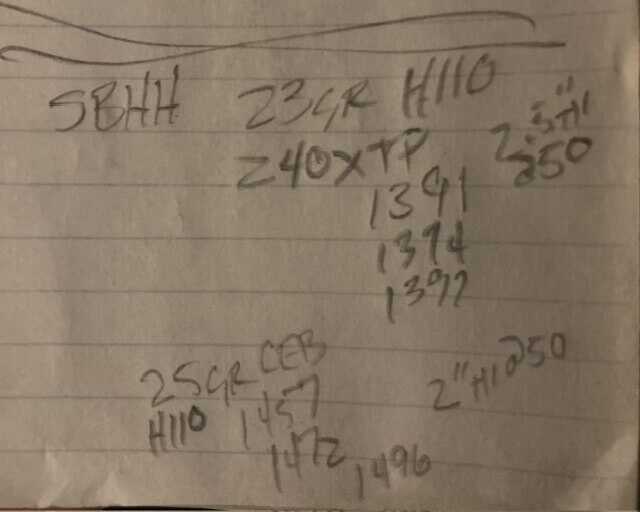 SBHH 23GR H110
240XTP 2.5" HI @50
1391
1394
1392
25GR CEB 2" HI @50
H110 1457
1472
1496